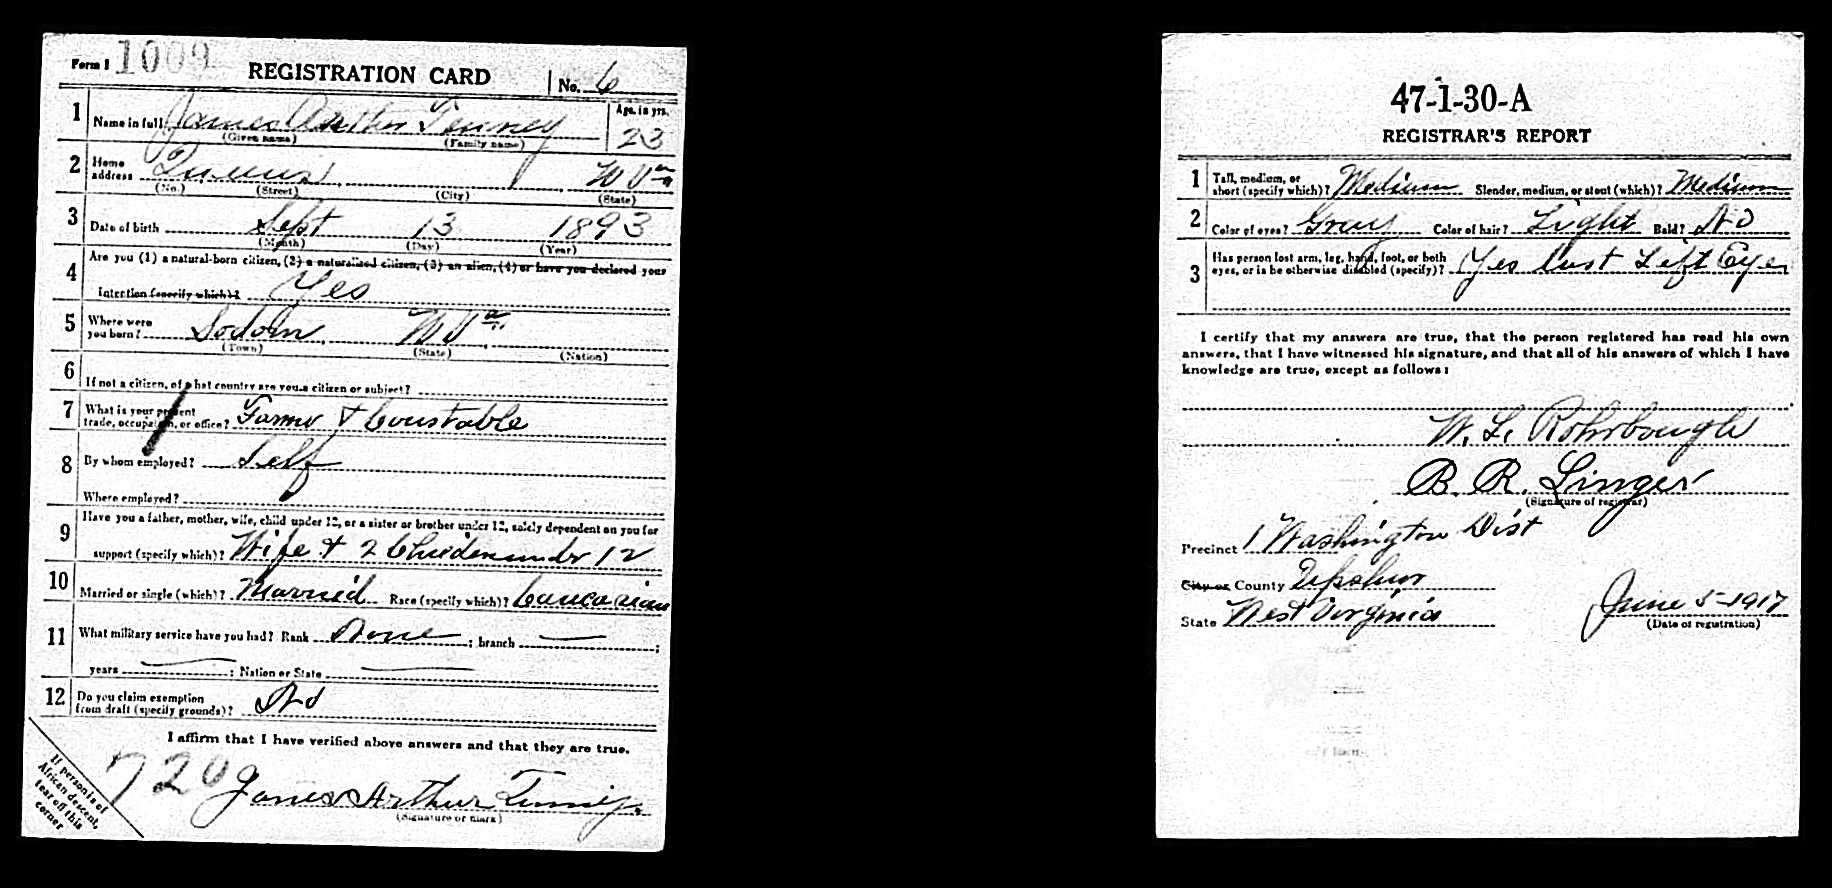 Form 1 1009 REGISTRATION CARD No. 6
1 Name in full James Arthur Tenney Age, in yrs. 23
(Given name) (Family name)
2 Home address Queens W Va
(No.) (Street) (City) (State)
3 Date of birth Sept 13 1893
(Month) (Day) (Year)
4 Are you (1) a natural-born citizen, (2) a naturalized citizen, (3) an alien, (4) or have you declared your
intention (specify which)? Yes
5 Where were you born? Sodom, W Va.
(Town) (State) (Nation)
6 If not a citizen, of what country are you a citizen or subject?
7 What is your present trade, occupation, or office? Farmer & Constable
8 By whom employed? Self
Where employed?
9 Have you a father, mother, wife, child under 12, or a sister or brother under 12, solely dependent on you for
support (specify which)? Wife & 2 Children under 12
10 Married or single (which)? Married Race (specify which)? Caucasian
11 What military service have you had? Rank None ; branch — ;
years — ; Nation or State —
12 Do you claim exemption from draft (specify grounds)? No
I affirm that I have verified above answers and that they are true.
720 James Arthur Tenney.
(Signature or mark)
If person is of
African descent,
tear off this
corner
47-1-30-A
REGISTRAR'S REPORT
1 Tall, medium, or short (specify which)? Medium Slender, medium, or stout (which)? Medium
2 Color of eyes? Gray Color of hair? Light Bald? No
3 Has person lost arm, leg, hand, foot, or both eyes, or is he otherwise disabled (specify)? Yes lost Left Eye
I certify that my answers are true, that the person registered has read his own
answers, that I have witnessed his signature, and that all of his answers of which I have
knowledge are true, except as follows:
W. L. Rohrbough
B. R. Linger
(Signature of registrar)
Precinct 1 Washington Dist
City or County Upshur
State West Virginia June 5-1917
(Date of registration)